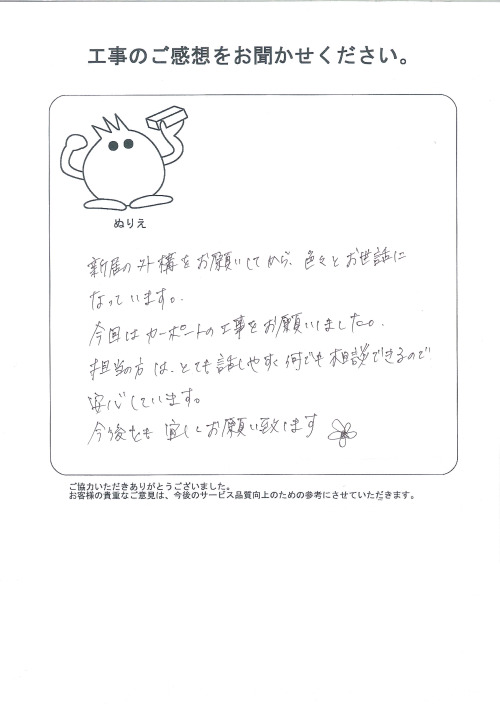 工事のご感想をお聞かせください。
ぬりえ
新居の外構をお願いしてから、色々とお世話に
なっています。
今回はカーポートの工事をお願いしました。
担当の方は、とても話しやすく何でも相談できるので
安心しています。
今後とも宜しくお願い致します
ご協力いただきありがとうございました。
お客様の貴重なご意見は、今後のサービス品質向上のための参考にさせていただきます。